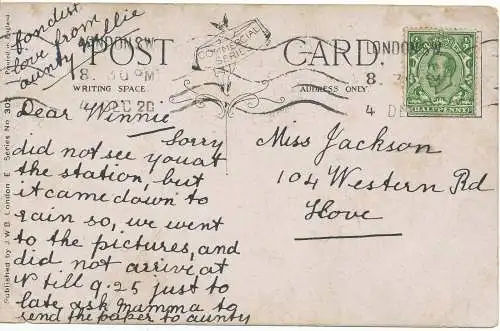 fondest
love from
aunty Nellie
POST CARD.
COMMERCIAL
SERIES
WRITING SPACE
ADDRESS ONLY
LONDON.S.W
8.30PM
4 DEC 20
LONDON.S.W
8.30
4 DE
HALFPENNY
Dear Winnie
Sorry
did not see you at
the station, but
it came down to
rain so, we went
to the pictures, and
did not arrive at
N till 9.25 just to
late ask mamma to
send the paper to aunty
Miss Jackson
104 Western Rd
Hove
Printed in England
Published by J.W.B. London E. Series No 302